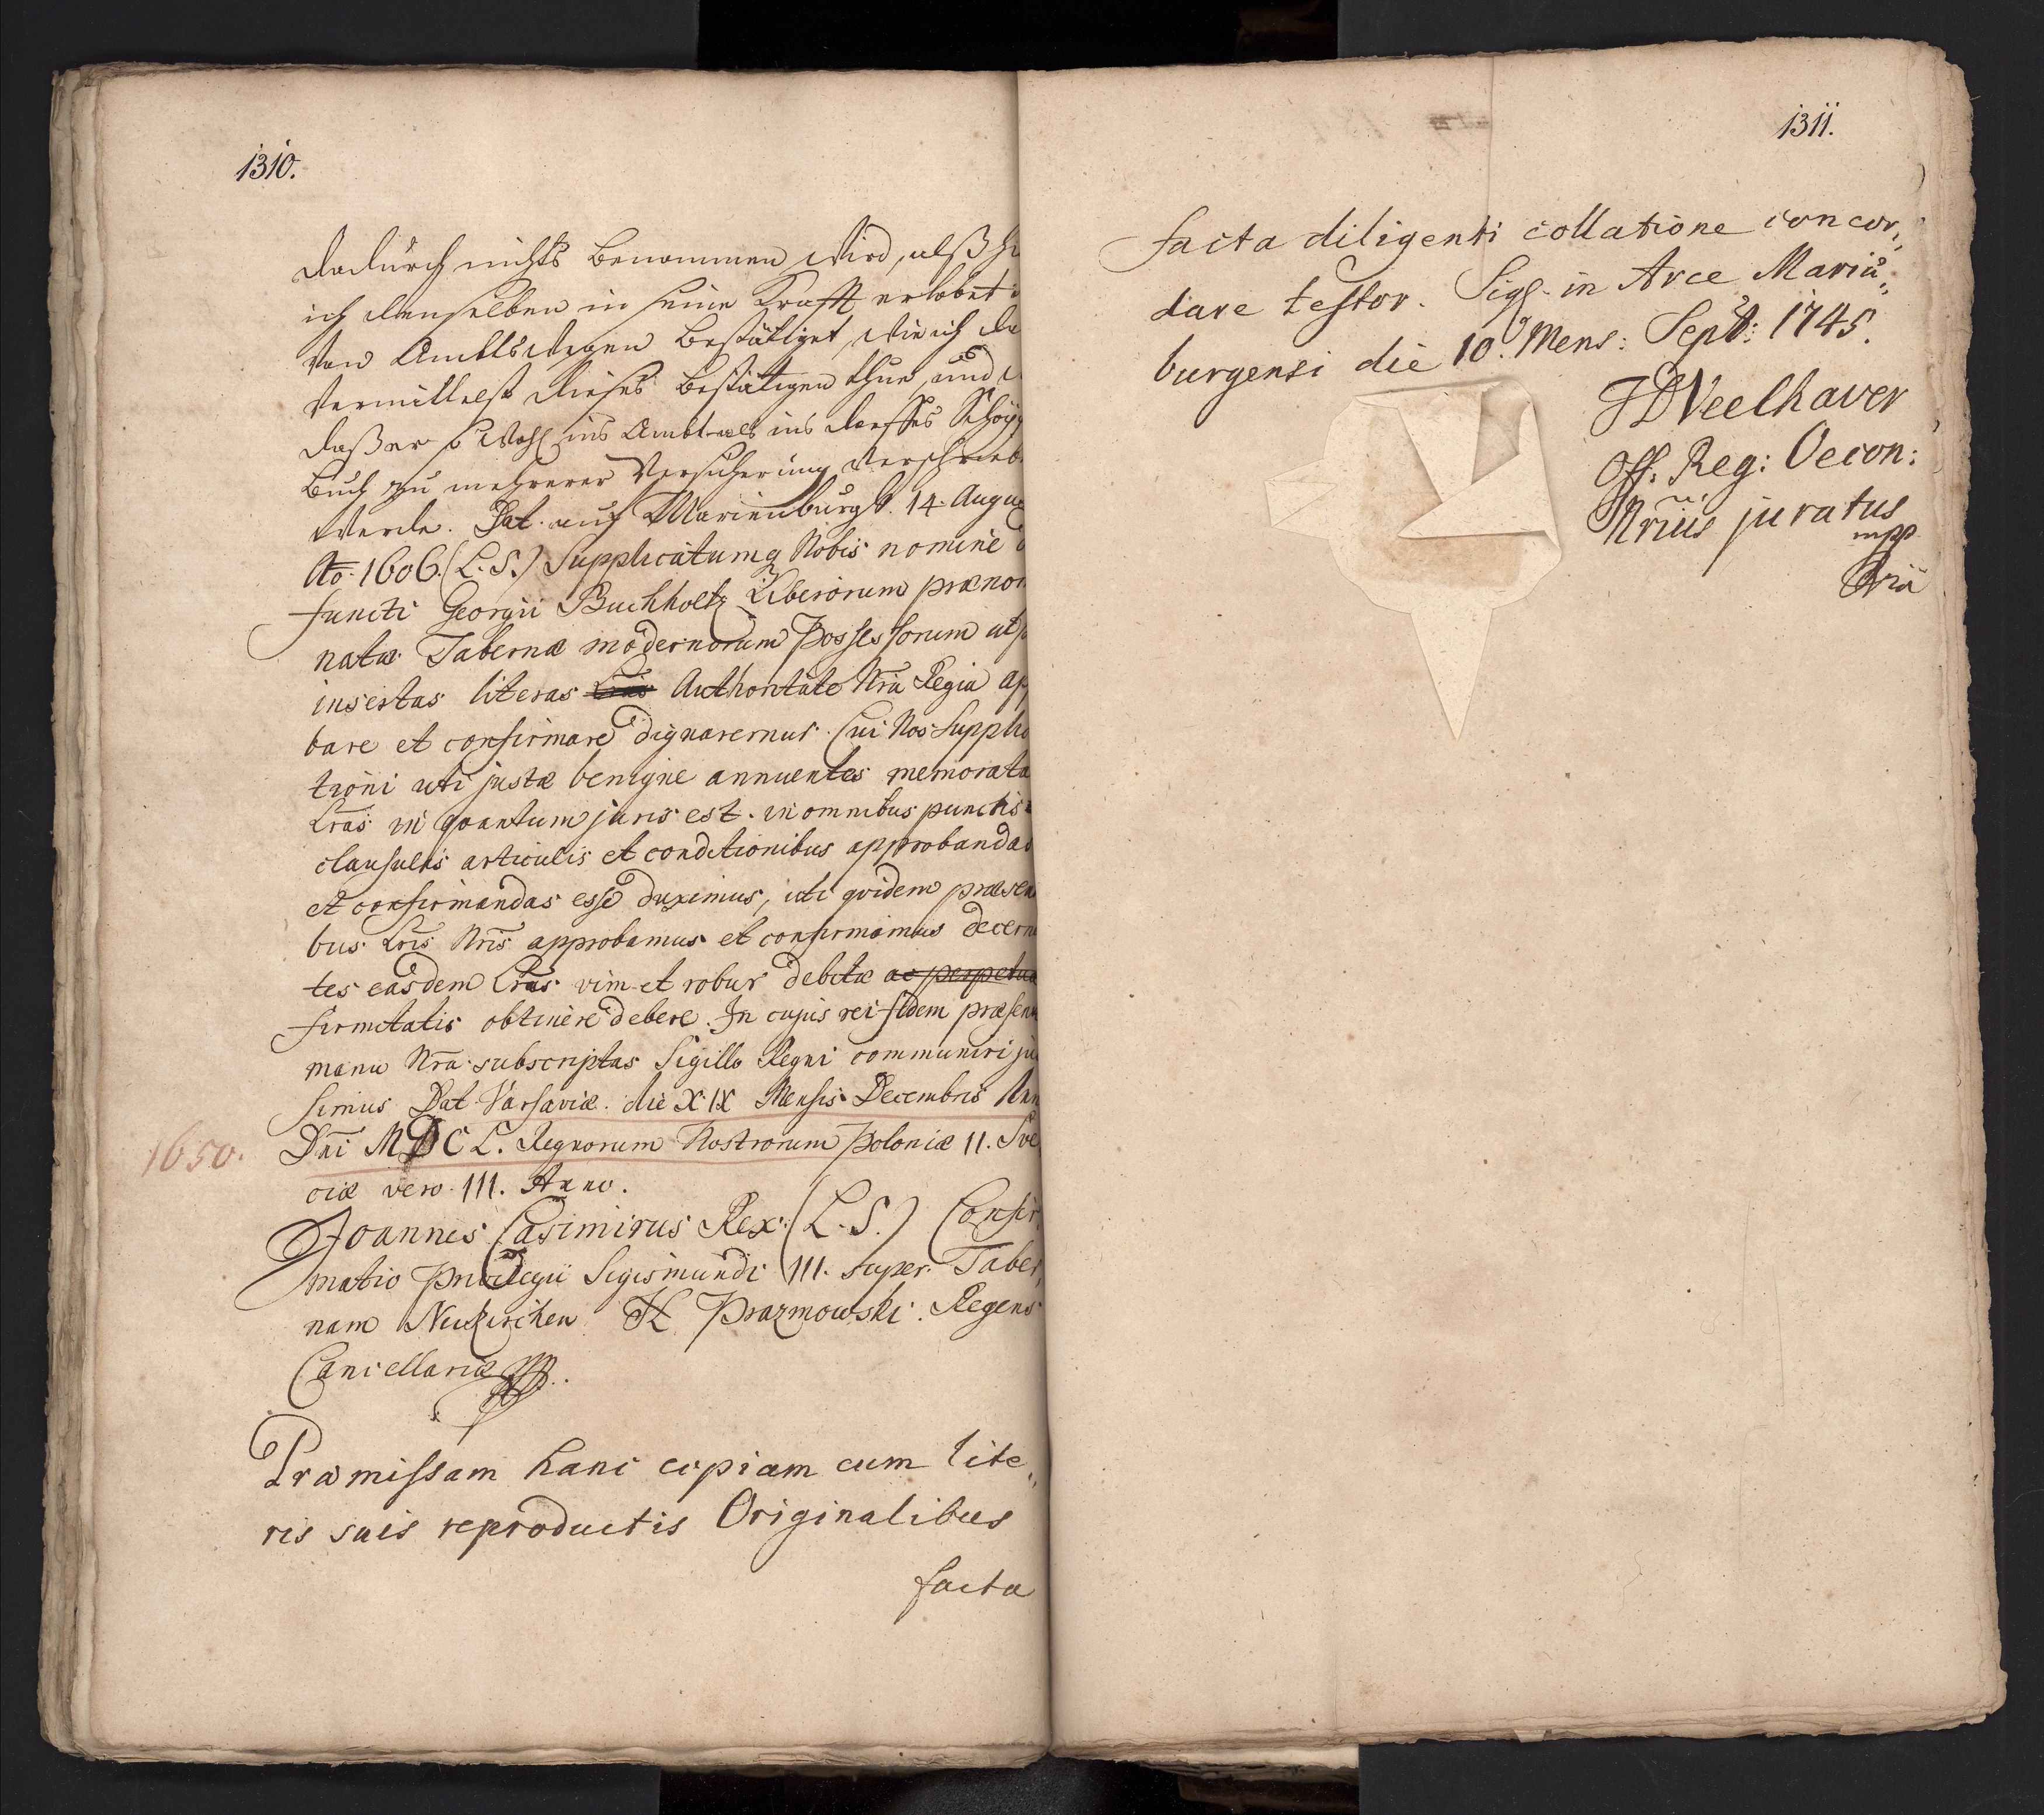 1310.
dadurch nichts benommen wird, alß
ich denselben in seine Krafft
von Ambtswegen bestättiget, wie ich
vermittelst dieses bestätigen thue, und
daß er so wohl ins Ambt als ins dorffes Schöpp
Buch zu mehrerer Versicherung verschrieb
werde. Dat. auf Marienburg d. 14. Augu
Ao: 1606. (L. S.) Supplicatumq Nobis nomine
functi Georgii Buchholtz Liberorum prænom
natæ Tabernæ modernorum Possessorum ut
insertas literas Authoritate Nrã Regia ap
bare et confirmare dignaremur. Cui Nos Supplica
tioni uti justæ benigne annuentes memorata
Lrãs in quantum juris est in omnibus punctis
clausulis articulis et conditionibus approbandas
et confirmandas esse duximus, uti quidem præsen
bus Lrĩs Nrĩs approbamus et confirmamus decern
tes easdem Lrãs vim et robur debitæ ac perpetuæ
firmitatis obtinere debere. In cujus rei fidem præsen
manu Nrã subscriptas Sigillo Regni communiri ju
simus Dat Varsaviæ die XIX Mensis Decembris Ann
1650. Dnĩ MDCL. Regnorum Nostrorum Poloniæ II. Sve
ciæ vero III. Anno.
Joannes Casimirus Rex (L. S.) Confir,,
matio Privilegii Sigismundi III. super Taber,,
nam Neukirchen Prazmowski Regens
Cancellariæ mpp.
Præmissam hanc copiam cum lite,,
ris suis reproductis Originalibus
facta
1311.
facta diligenti collatione concor,,
dare testor. Sigl. in Arce Mariæ,,
burgensi die 10. Mens: Septb: 1745.
JDNeelhaver
Off. Reg: Oecon:
Nrius juratus
mpp